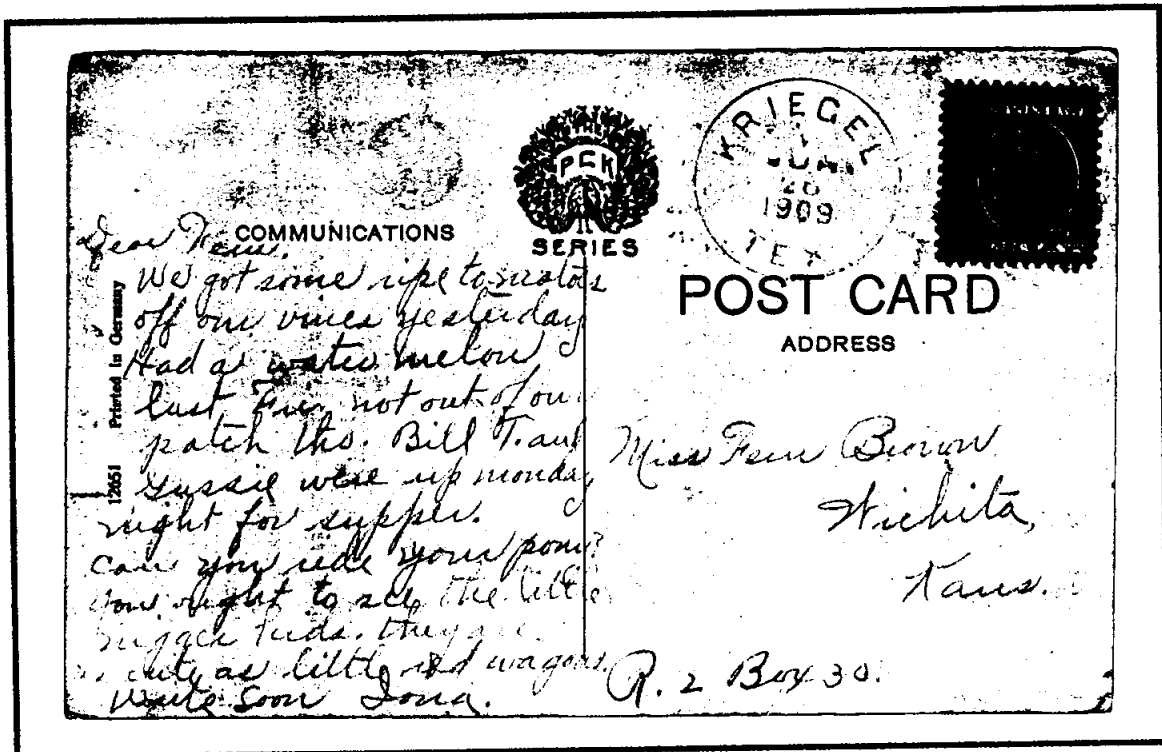 KRIEGEL
26
1909
TEX
PCK
SERIES
COMMUNICATIONS
POST CARD
ADDRESS
12651 Printed in Germany
Dear Fern.
We got some ripe tomatoes
off our vines yesterday
Had a water melon
last not out of our
patch tho. Bill T. and
Gussie were up monday
night for supper.
Can you ride your pony?
You ought to see the little
nigger kids. they are
cute as little red wagons.
Write Soon Iona.
Miss Fern Brown
Wichita,
Kans.
R. 2 Box 30.